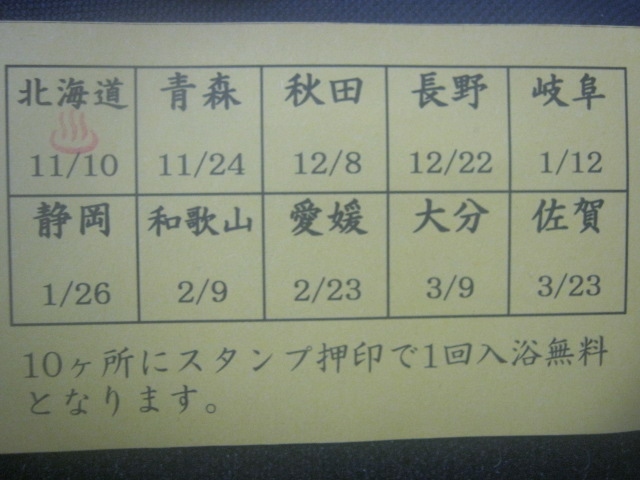 北海道 青森 秋田 長野 岐阜
11/10 11/24 12/8 12/22 1/12
静岡 和歌山 愛媛 大分 佐賀
1/26 2/9 2/23 3/9 3/23
10ヶ所にスタンプ押印で1回入浴無料
となります。